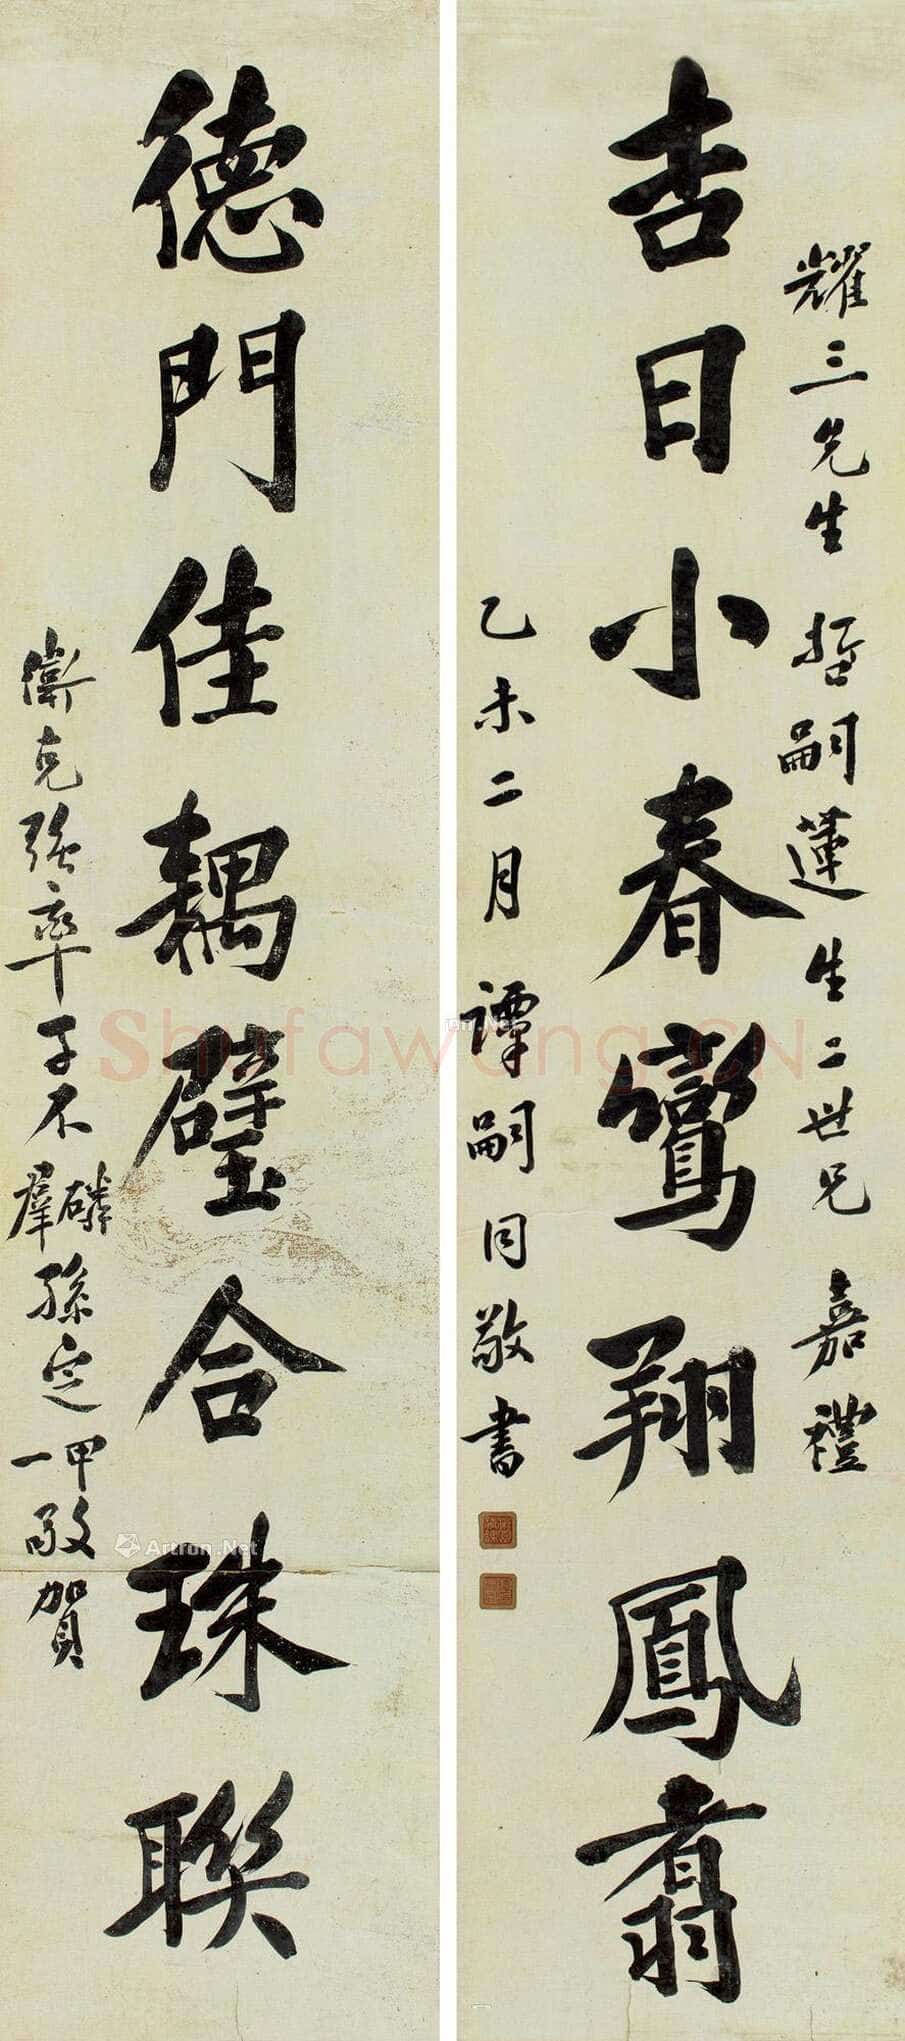 耀三先生 哲嗣蓮生二世兄 嘉禮
吉日小春鸞翔鳳翥
乙未二月 譚嗣同敬書
德門佳耦璧合珠聯
衛克強率子不磷羣孫定一甲敬賀
Shufawang.CN
Artron.Net